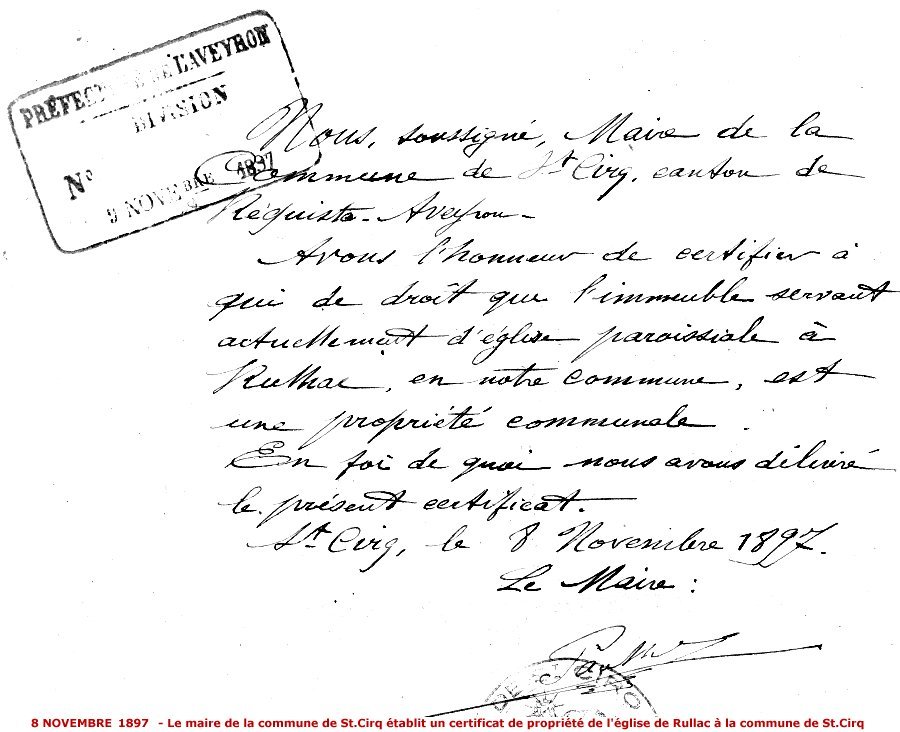 PRÉFECTURE DE L'AVEYRON
DIVISION
N°
9 NOVEMBRE 1897
Nous, soussigné, Maire de la
Commune de St Cirq, canton de
Réquista - Aveyron -
Avons l'honneur de certifier à
qui de droit que l'immeuble servant
actuellement d'église paroissiale à
Rulhac, en notre commune, est
une propriété communale.
En foi de quoi nous avons délivré
le présent certificat.
St Cirq, le 8 Novembre 1897.
Le Maire :
8 NOVEMBRE 1897 - Le maire de la commune de St.Cirq établit un certificat de propriété de l'église de Rullac à la commune de St.Cirq